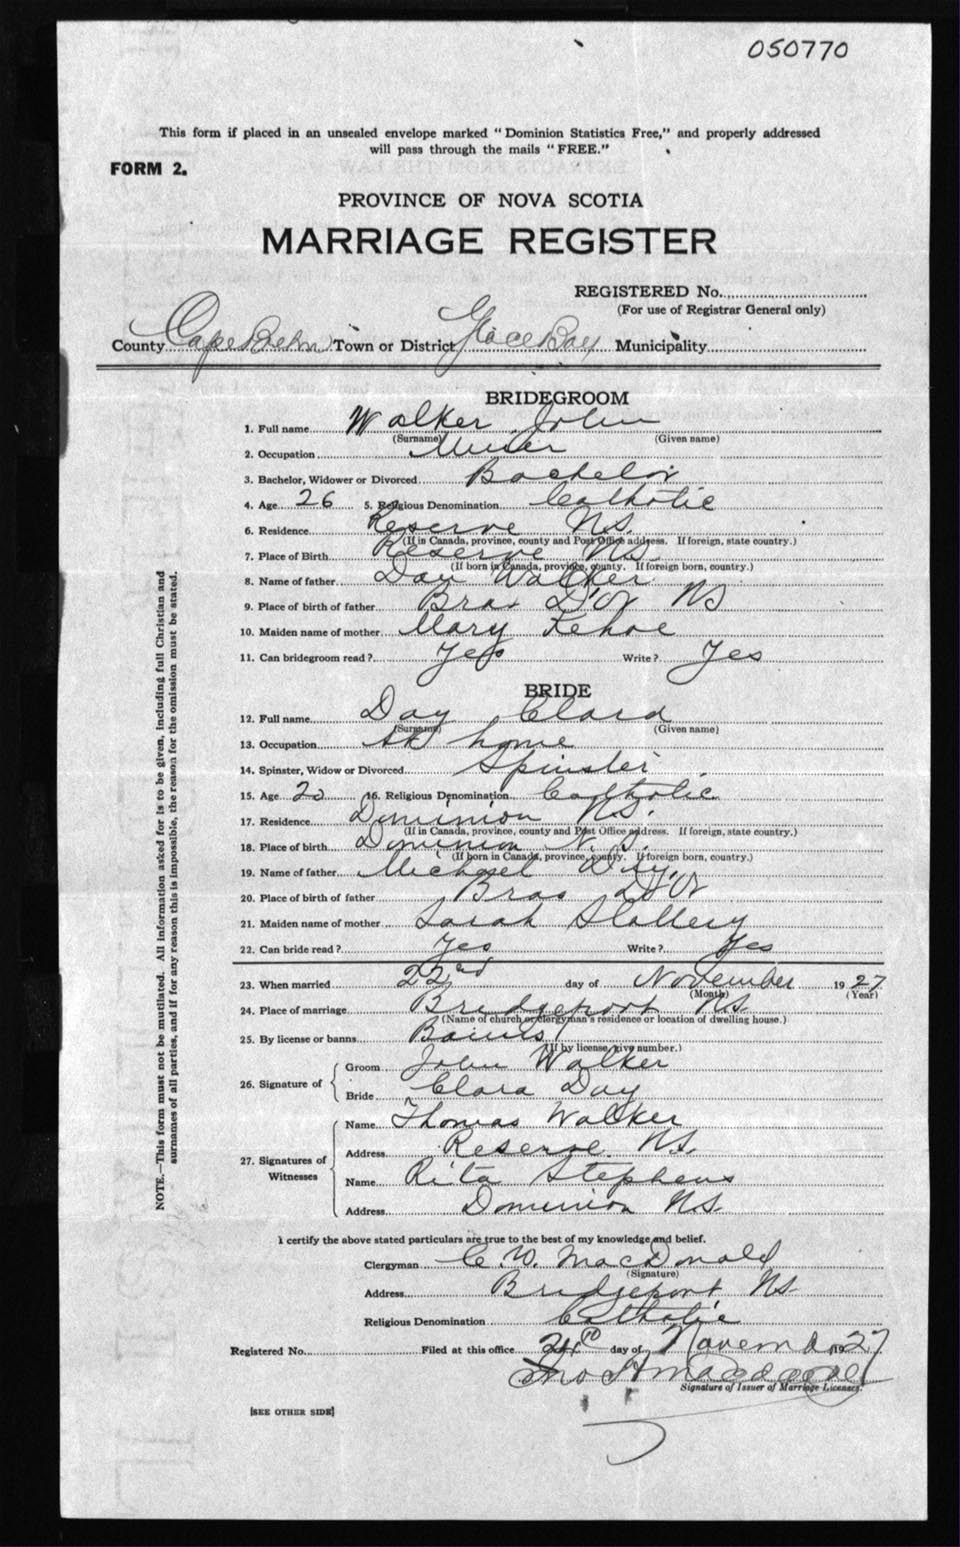 050770
This form if placed in an unsealed envelope marked "Dominion Statistics Free," and properly addressed
will pass through the mails "FREE."
FORM 2.
PROVINCE OF NOVA SCOTIA
MARRIAGE REGISTER
REGISTERED No.
(For use of Registrar General only)
County Cape Breton Town or District Glace Bay Municipality
BRIDEGROOM
1. Full name Walker John
(Surname) (Given name)
2. Occupation Miner
3. Bachelor, Widower or Divorced Bachelor
4. Age 26 5. Religious Denomination Catholic
6. Residence Reserve N.S.
(If in Canada, province, county and Post Office address. If foreign, state country.)
7. Place of Birth Reserve NS
(If born in Canada, province, county. If foreign born, country.)
8. Name of father Dan Walker
9. Place of birth of father Bras D'Or NS
10. Maiden name of mother Mary Kehoe
11. Can bridegroom read? Yes Write? Yes
BRIDE
12. Full name Day Clara
(Surname) (Given name)
13. Occupation At home
14. Spinster, Widow or Divorced Spinster
15. Age 20 16. Religious Denomination Catholic
17. Residence Dominion N.S.
(If in Canada, province, county and Post Office address. If foreign, state country.)
18. Place of birth Dominion N.S.
(If born in Canada, province, county. If foreign born, country.)
19. Name of father Michael Day
20. Place of birth of father Bras D'Or
21. Maiden name of mother Sarah Slattery
22. Can bride read? Yes Write? Yes
23. When married 22nd day of November 1927
(Month) (Year)
24. Place of marriage Bridgeport NS
(Name of church or clergyman's residence or location of dwelling house.)
25. By license or banns Banns
(If by license, give number.)
26. Signature of
Groom John Walker
Bride Clara Day
27. Signatures of Witnesses
Name Thomas Walker
Address Reserve N.S.
Name Rita Stephens
Address Dominion N.S.
I certify the above stated particulars are true to the best of my knowledge and belief.
Clergyman C. W. MacDonald
(Signature)
Address Bridgeport NS
Religious Denomination Catholic
Registered No. Filed at this office day of Novem 1927
Signature of Issuer of Marriage Licenses.
[SEE OTHER SIDE]
NOTE.—This form must not be mutilated. All information asked for is to be given, including full Christian and
surnames of all parties, and if for any reason this is impossible, the reason for the omission must be stated.